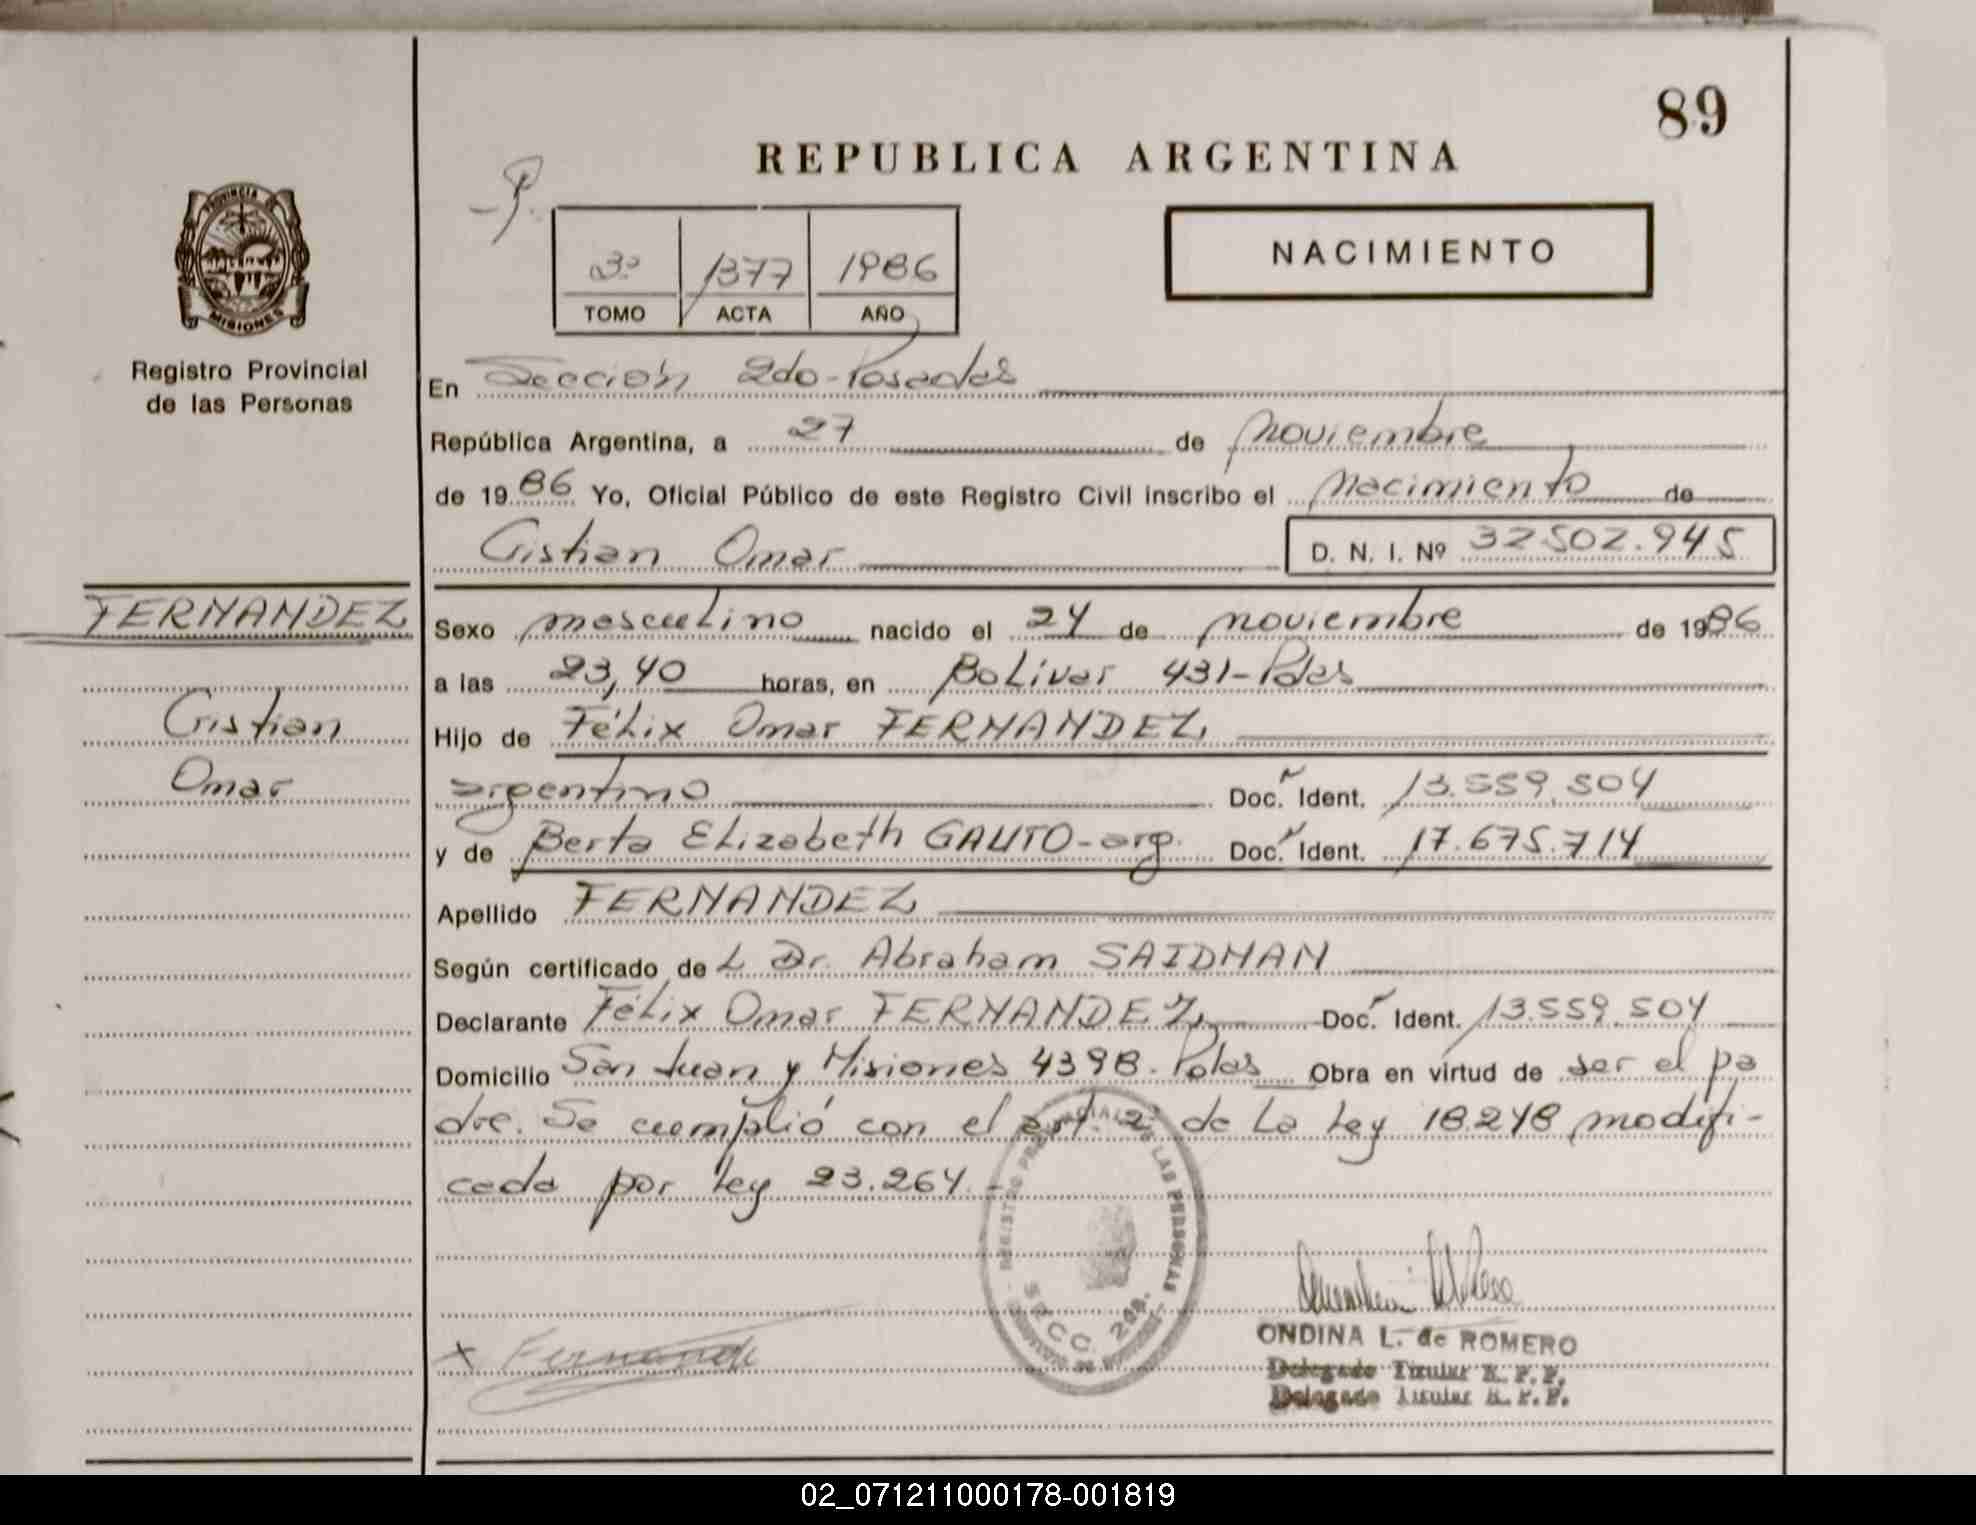 89
REPUBLICA ARGENTINA
PROVINCIA DE
MISIONES
3º 1377 1986
TOMO ACTA AÑO
NACIMIENTO
Registro Provincial
de las Personas
En Sección 2do-Posadas
República Argentina, a 27 de noviembre
de 1986 Yo, Oficial Público de este Registro Civil inscribo el nacimiento de
Cristian Omar D. N. I. Nº 32502.945
FERNANDEZ
Cristian
Omar
Sexo masculino nacido el 24 de noviembre de 1986
a las 23,40 horas, en Bolívar 431-Pdas
Hijo de Félix Omar FERNANDEZ,
argentino Doc. Ident. 13.559.504
y de Berta Elizabeth GAUTO-arg. Doc. Ident. 17.675.714
Apellido FERNANDEZ
Según certificado de L Dr. Abraham SAIDMAN
Declarante Félix Omar FERNANDEZ, Doc. Ident. 13.559.504
Domicilio San Juan y Misiones 4398-Pdas Obra en virtud de ser el pa
dre. Se cumplió con el art. 2 de la Ley 18.248 modifi-
cada por ley 23.264.-
LAS PERSONAS
SECC. 2da.
x Fernande
ONDINA L. de ROMERO
Delegado Titular R. P. P.
Delegado Titular R. P. P.
02_071211000178-001819